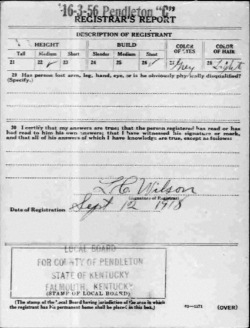 16-3-56 Pendleton "C"
REGISTRAR'S REPORT
DESCRIPTION OF REGISTRANT
HEIGHT BUILD COLOR OF EYES COLOR OF HAIR
Tall Medium Short Slender Medium Stout
21 22 23 24 25 26 27 Grey 28 Light
29 Has person lost arm, leg, hand, eye, or is he obviously physically disqualified?
(Specify.)
30 I certify that my answers are true; that the person registered has read or has
had read to him his own answers; that I have witnessed his signature or mark,
and that all of his answers of which I have knowledge are true, except as follows:
L C Wilson
(Signature of Registrar)
Date of Registration Sept 12 1918
LOCAL BOARD
FOR COUNTY OF PENDLETON
STATE OF KENTUCKY
FALMOUTH, KENTUCKY
(STAMP OF LOCAL BOARD)
(The stamp of the Local Board having jurisdiction of the area in which
the registrant has his permanent home shall be placed in this box.)
(OVER)